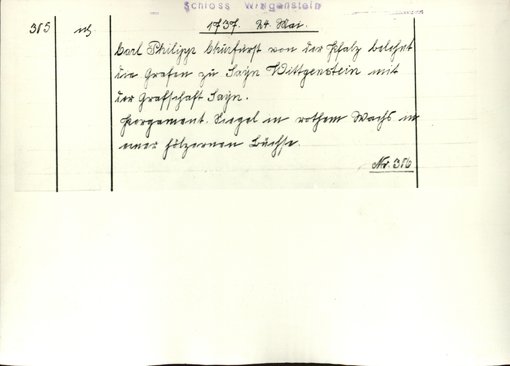 Schloss Wittgenstein
1737. 24 Mai.
315
Carl Philipp Churfürst von der Pfalz belehnt
die Grafen zu Sayn Wittgenstein mit
der Grafschaft Sayn.
Pergament. Siegel in rothem Wachs in
einer hölzernen Büchse.
Nr. 316